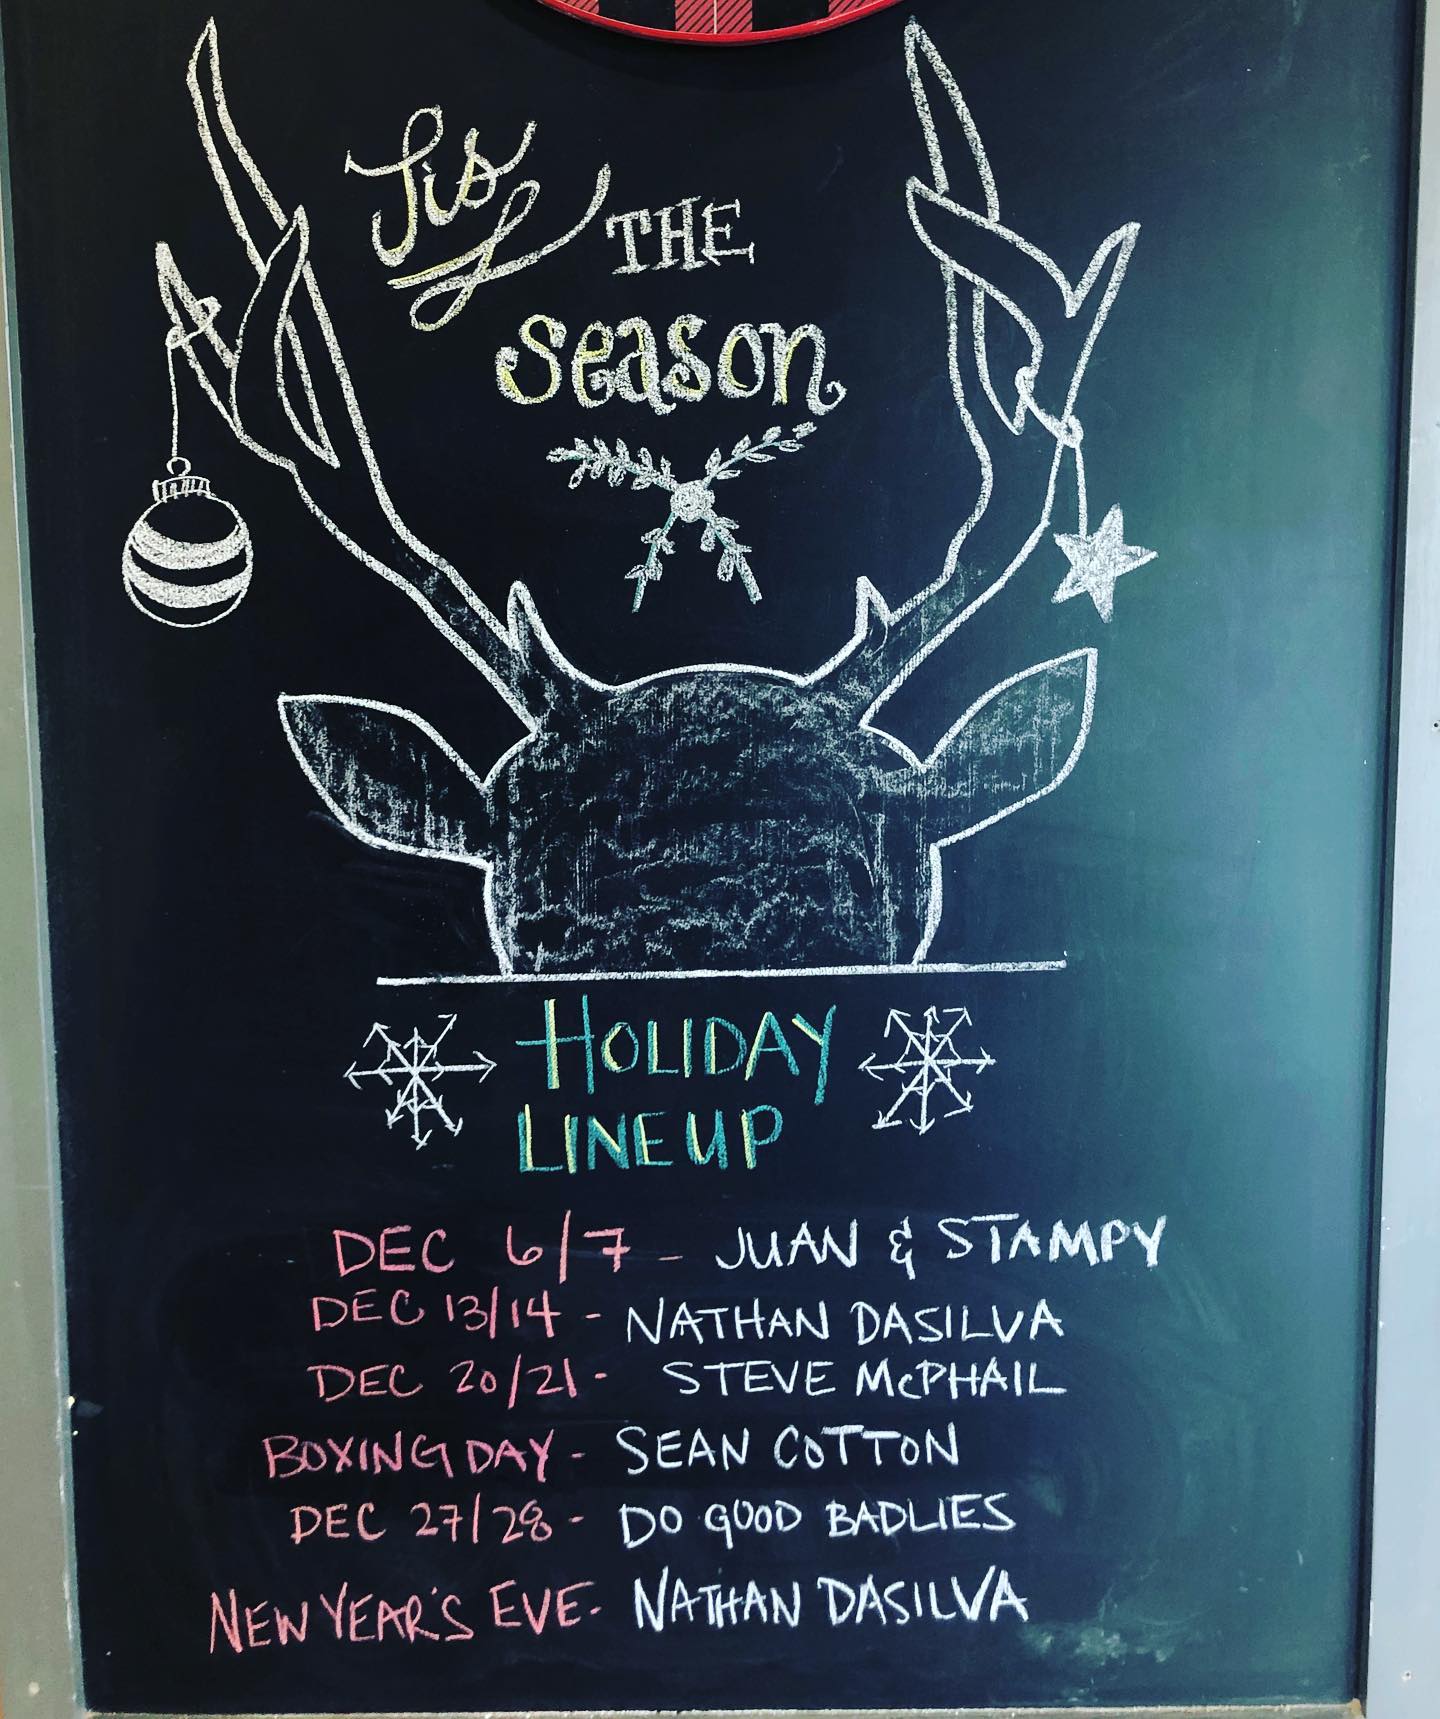 Tis
THE
season
HOLIDAY
LINEUP
DEC 6/7 - JUAN & STAMPY
DEC 13/14 - NATHAN DASILVA
DEC 20/21 - STEVE McPHAIL
BOXING DAY - SEAN COTTON
DEC 27/28 - DO GOOD BADLIES
NEW YEAR'S EVE - NATHAN DASILVA